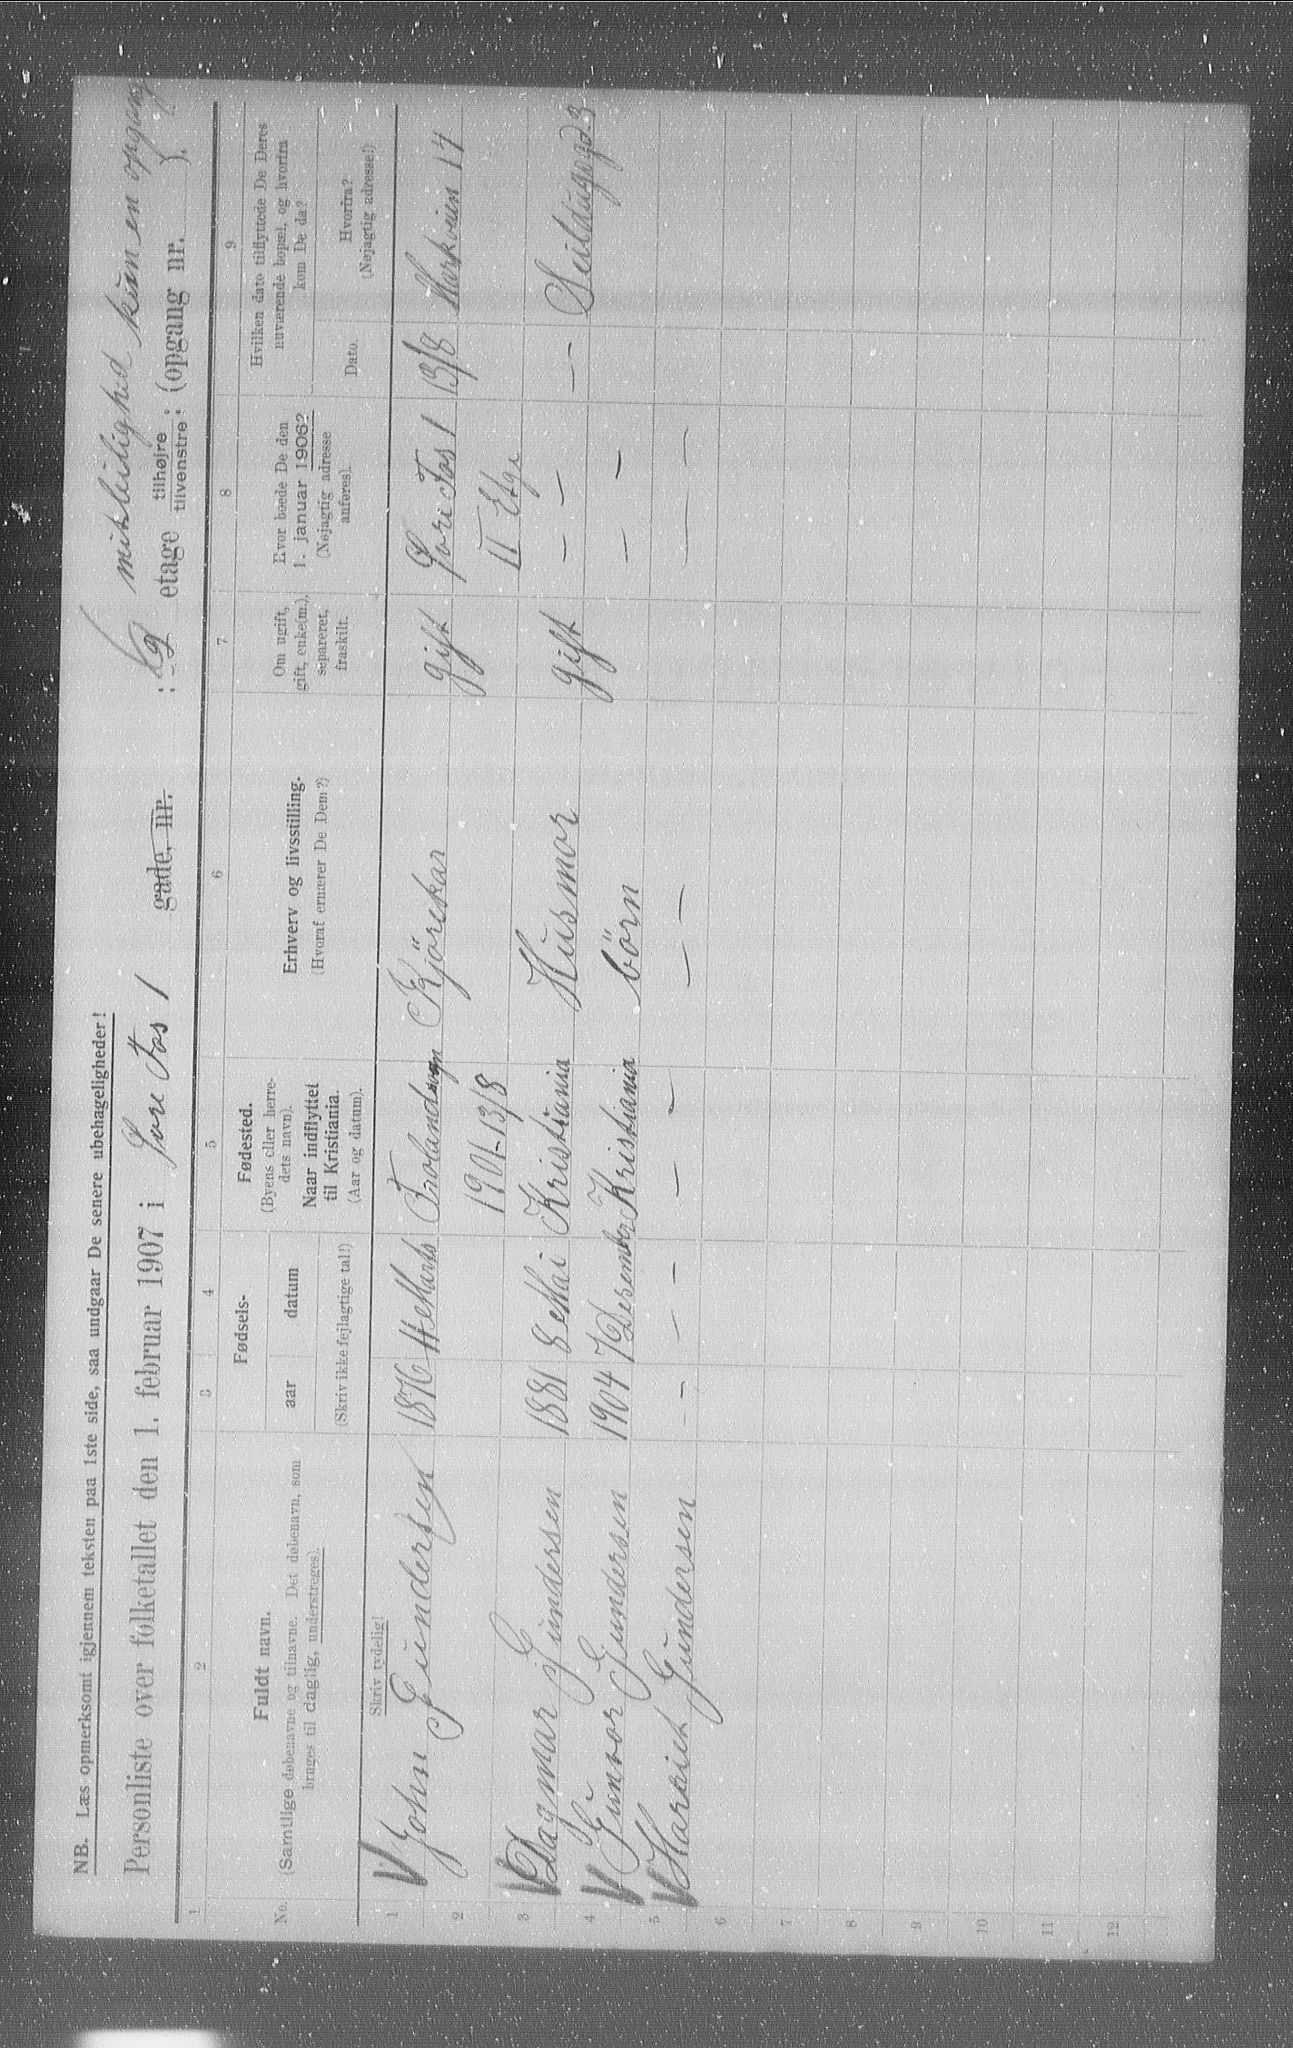 NB. Læs opmerksomt igjennem teksten paa 1ste side, saa undgaar De senere ubehageligheder!
Personliste over folketallet den 1. februar 1907 i Søre Fos 1 gade, nr. : 2 etage tilhøjre tilvenstre: (opgang nr. ).
kun en opgang
1 2 3 4 5 6 7 8 9
No.
Fuldt navn.
(Samtlige døbenavne og tilnavne. Det døbenavn, som
bruges til daglig, understreges).
Skriv tydelig!
Fødsels-
aar datum
(Skriv ikke fejlagtige tal!)
Fødested.
(Byens eller herre-
dets navn).
Naar indflyttet
til Kristiania.
(Aar og datum).
Erhverv og livsstilling.
(Hvoraf ernærer De Dem?)
Om ugift,
gift, enke(m.),
separeret,
fraskilt.
Hvor boede De den
1. januar 1906?
(Nøjagtig adresse
anføres).
Hvilken dato tilflyttede De Deres
nuværende bopæl, og hvorfra
kom De da?
Dato.
Hvorfra?
(Nøjagtig adresse!)
1 John Gundersen 1876 Marts Froland Kjörekar gift Søre Fos 1 13/8 Markveien 17
2 1901-13/8 II Etge
3 Dagmar Gunderssen 1881 8 Mai Kristiania Husmor gift — — —
4 Gunvor Gundersen 1904 7 Desember Kristiania börn — —
5 Harriet Gundersen — — — — — — — — —
6
7
8
9
10
11
12